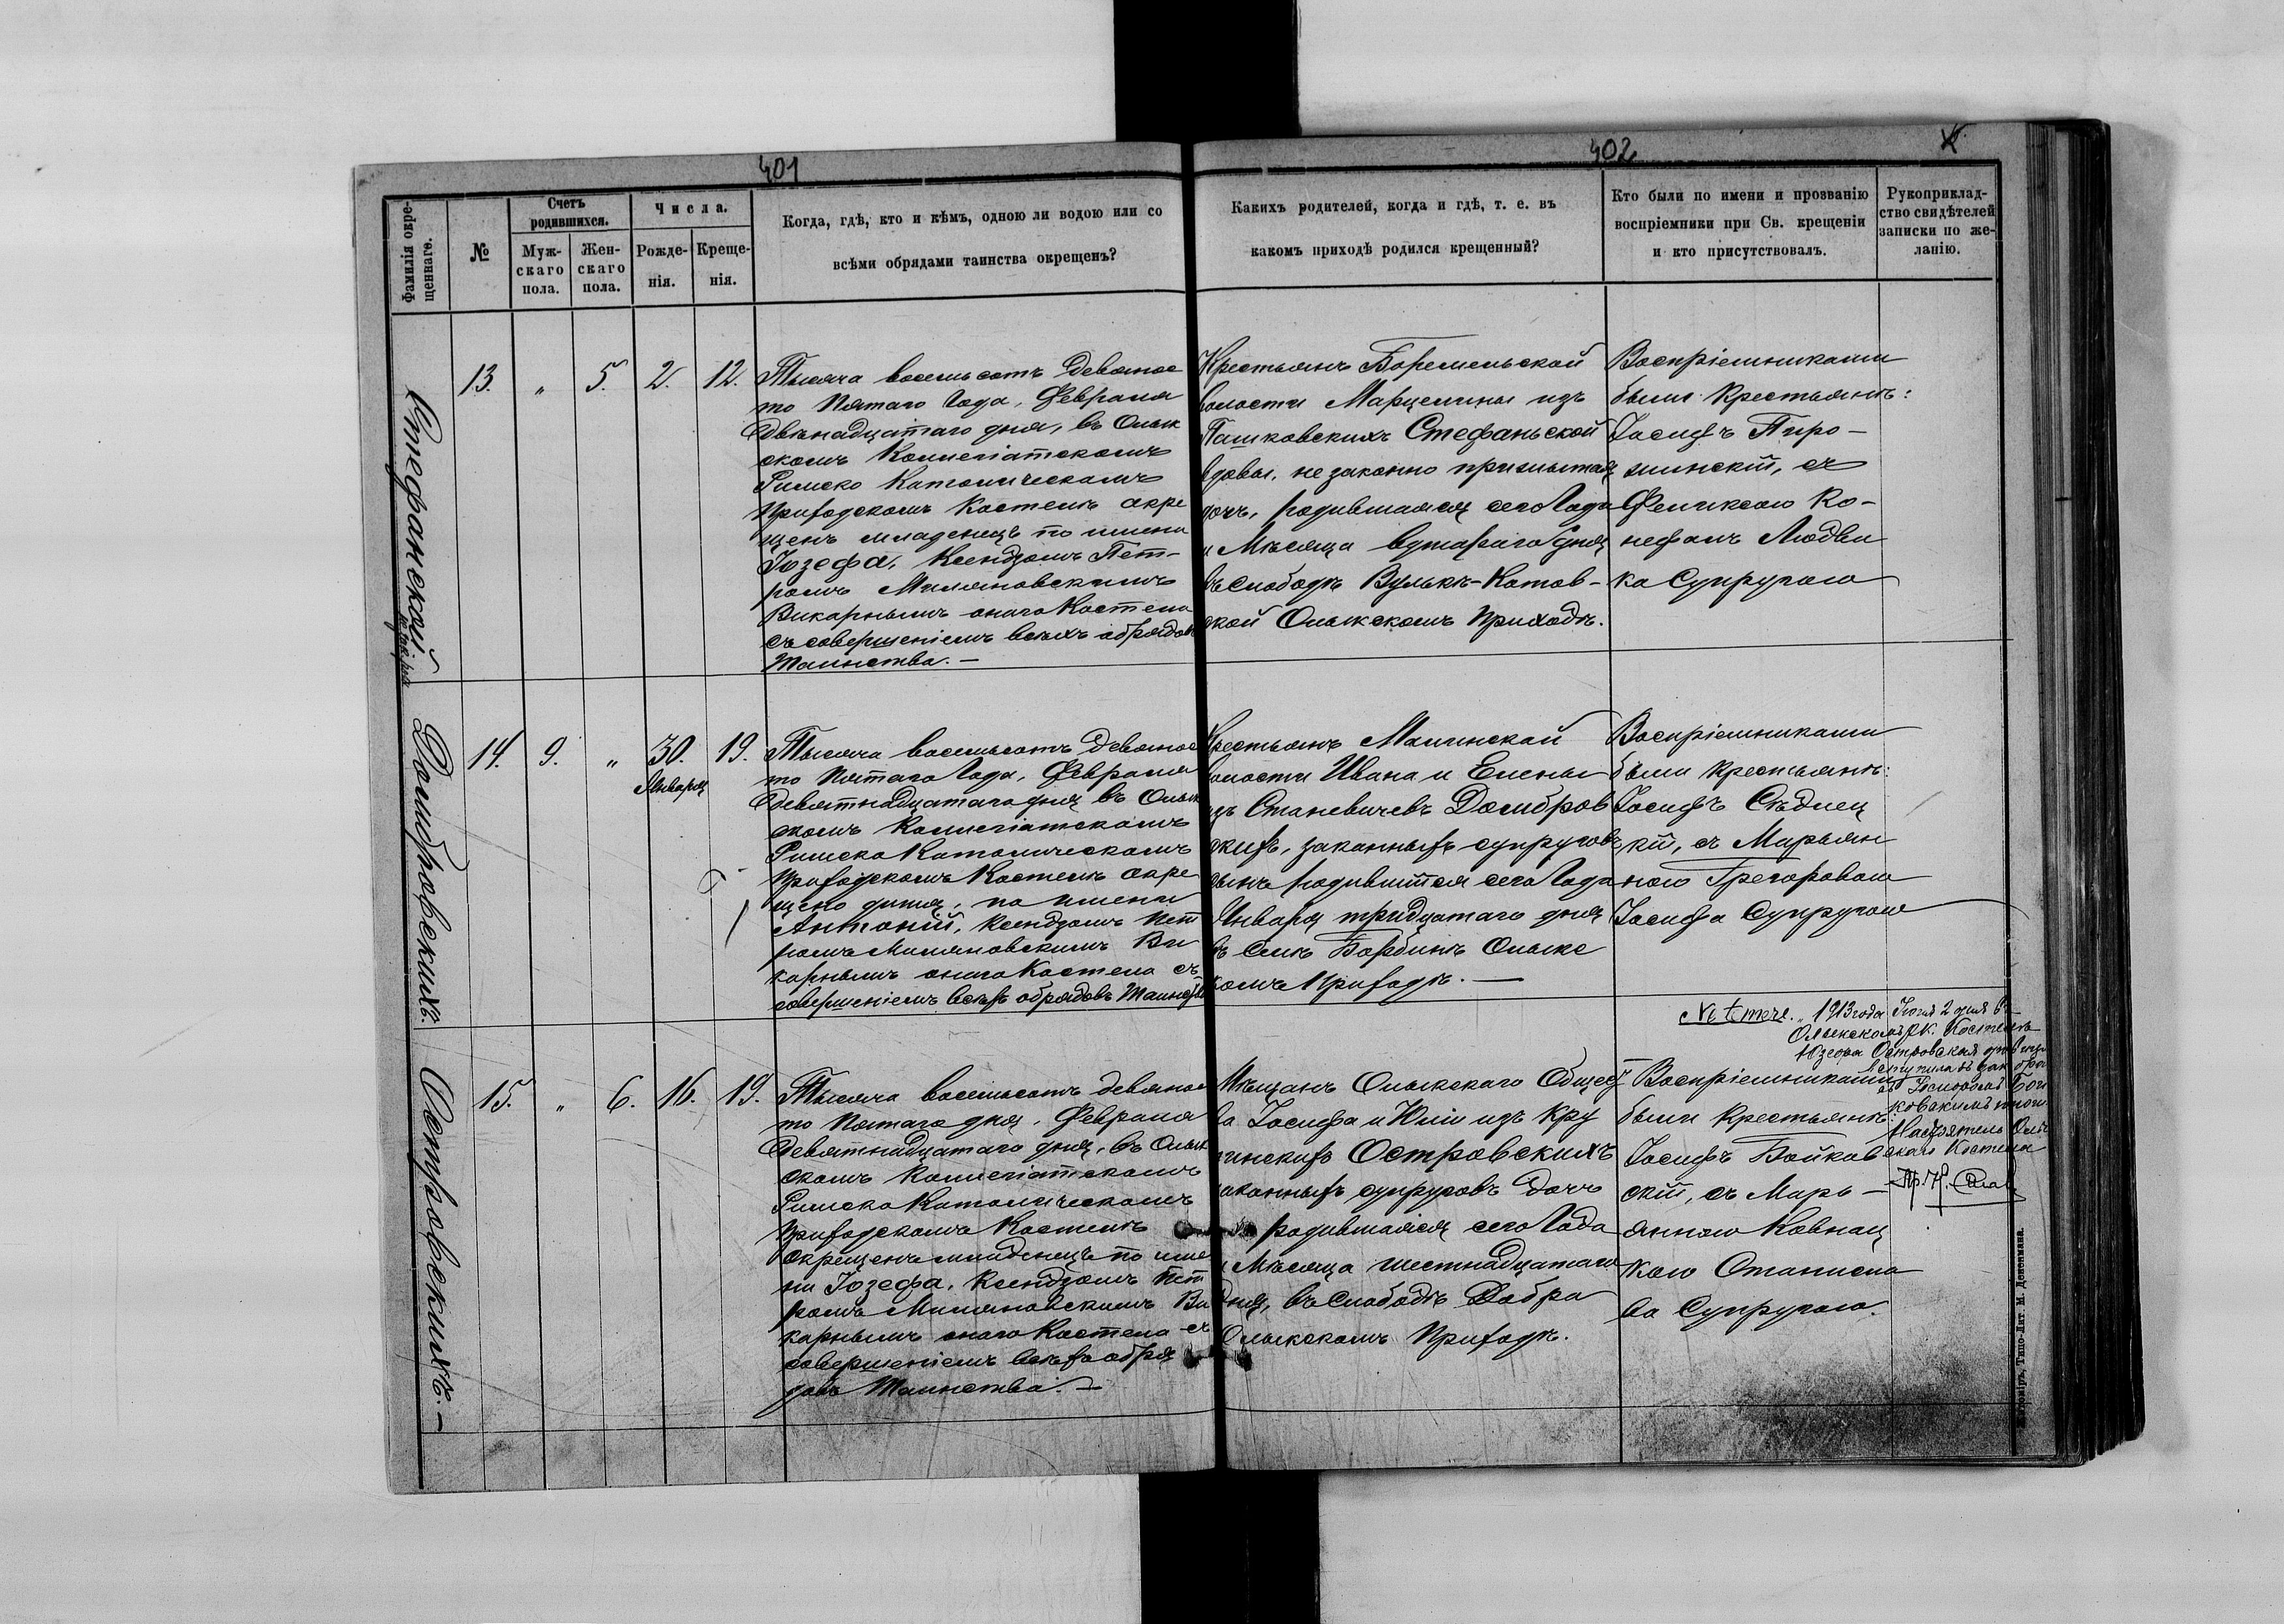 401
Фамилія окре-
щеннаго.
№
Счетъ
родившихся.
Муж-
скаго
пола.
Жен-
скаго
пола.
Числа.
Рожде-
нія.
Креще-
нія.
Когда, гдѣ, кто и кѣмъ, одною ли водою или со
всѣми обрядами таинства окрещенъ?
402
Какихъ родителей, когда и гдѣ, т. е. въ
какомъ приходѣ родился крещенный?
Кто были по имени и прозванію
воспріемники при Св. крещеніи
и кто присутствовалъ.
Рукоприклад-
ство свидѣтелей
записки по же-
ланію.
Стефанской
13.
"
5.
2.
12.
Тысяча восемьсотъ девянос
то Пятаго Года, Февраля
Двѣнадцатаго дня, въ Олык
скомъ Коллегіатскомъ
Римско Католическомъ
Приходскомъ Костелѣ окре
щенъ младенецъ по имени
Іозефа, Ксендзомъ Пет-
ромъ Миляновскимъ
Викарнымъ онаго Костела
съ совершеніемъ всѣхъ обрядовъ
Таинства. —
Крестьянъ Боремельской
волости Марцелины изъ
Пашковскихъ Стефаньской
вдовы, не законно прижытая
дочь, родившаяся сего Года
и Мѣсяца втараго дня
въ Слободѣ Вулькѣ-Котов-
ской Олыкскомъ Приходѣ.
Воспріемниками
были Крестьянѣ:
Іосифъ Пиро-
жинскій, съ
Феликсою Ко-
нефалъ Людви
ка Супругою
Домбровскихъ.
14.
9.
"
30.
Января
19.
Тысяча восемьсотъ девянос
то Пятаго Года, Февраля
Девятнадцатаго дня въ Олык
скомъ Коллегіатскомъ
Римско Католическомъ
Приходскомъ Костелѣ окре
щено дитя, по имени
Антоній, Ксендзомъ Пет
ромъ Миляновскимъ Ви
карнымъ онаго Костела съ
совершеніемъ всѣхъ обрядовъ Таинства
Крестьянъ Малинской
волости Ивана и Елены
изъ Станевичевъ Домбров
скихъ, законныхъ супруговъ
сынъ родившійся сего Года
Января тридцатаго дня
въ Селѣ Борбинѣ Олыкс
комъ Приходѣ. —
Воспріемниками
были крестьянѣ:
Іосифъ Сѣдлец
кій, съ Марьян
ною Грегоровою
Іосифа Супругою
Островскихъ. —
15.
"
6.
16.
19.
Тысяча восемьсотъ девянос
то Пятаго дня, Февраля
Девятнадцатаго дня, въ Олык
скомъ Коллегіатскомъ
Римско Католическомъ
Приходскомъ Костелѣ
окрещенъ младенецъ по име
ни Іозефа, Ксендзомъ Пет
ромъ Миляновскимъ Ви
карнымъ онаго Костела съ
совершеніемъ всѣхъ обря
довъ Таинства. —
Мѣщанъ Олыкскаго Общест
ва Іосифа и Юліи изъ Кру
Островскихъ
законныхъ супруговъ дочь
родившаяся сего Года
и Мѣсяца шестнадцатаго
дня, въ Слободѣ Добра
Олыкскомъ Приходѣ.
Воспріемниками
были крестьянѣ:
Іосифъ Бойков
скій, съ Марь-
янною Ковнац
кою Станисла
ва Супругою.
Ne temere. 1913 года Іюня 2 дня въ
Олыкскомъ РК. Костелѣ
Юзефа Островская
вступила въ
съ
Настоятель Олык
скаго Костела
Житоміръ, Типо-Лит. М. Дененмана.